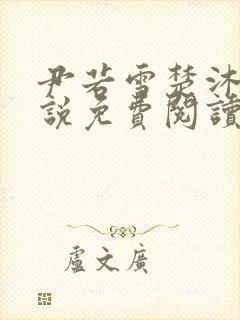 尹若雪楚沐
說免費閱讀
盧文廣